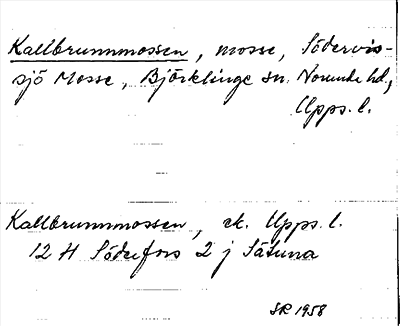 Kallbrunnmossen, mosse, Södervis-
sjö Mosse, Björklinge sn. Norunda hd,
Upps. l.
Kallbrunnmossen, ek. Upps. l.
12 H Söderfors 2 j Sätuna
SR 1958